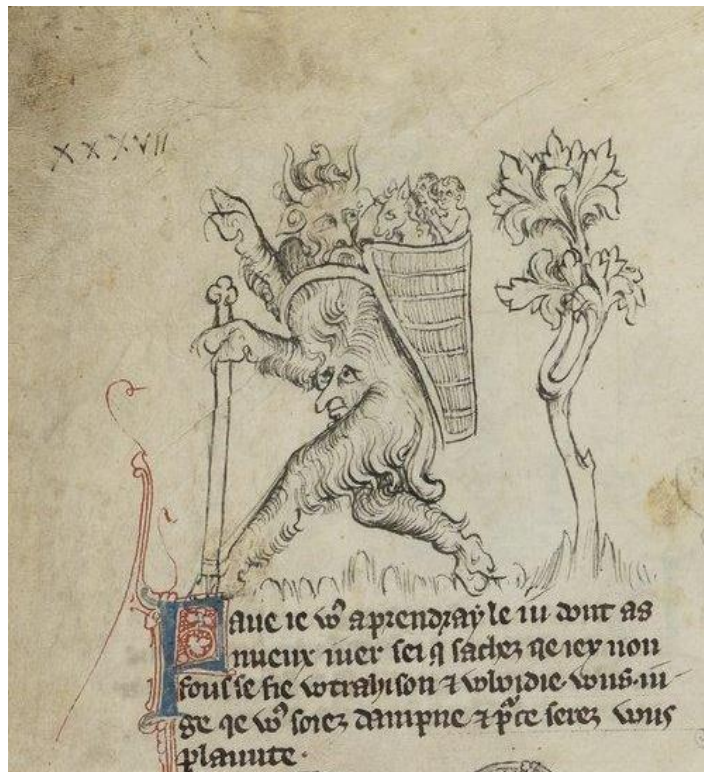 XXXVII
aue ie vo9 aprendray le iu dont as
nueux iuer sei q sachez qe iey non
fous se fie vo traison & voloidie vous iu
ge qe vo9 soiez dampne & pce serez vous
plauute.